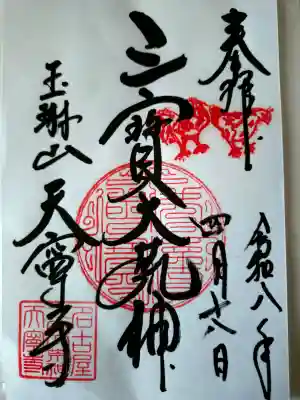 奉拝
令和八年
四月十八日
三寳大荒神
玉琳山天寧寺
名古屋
天寧寺